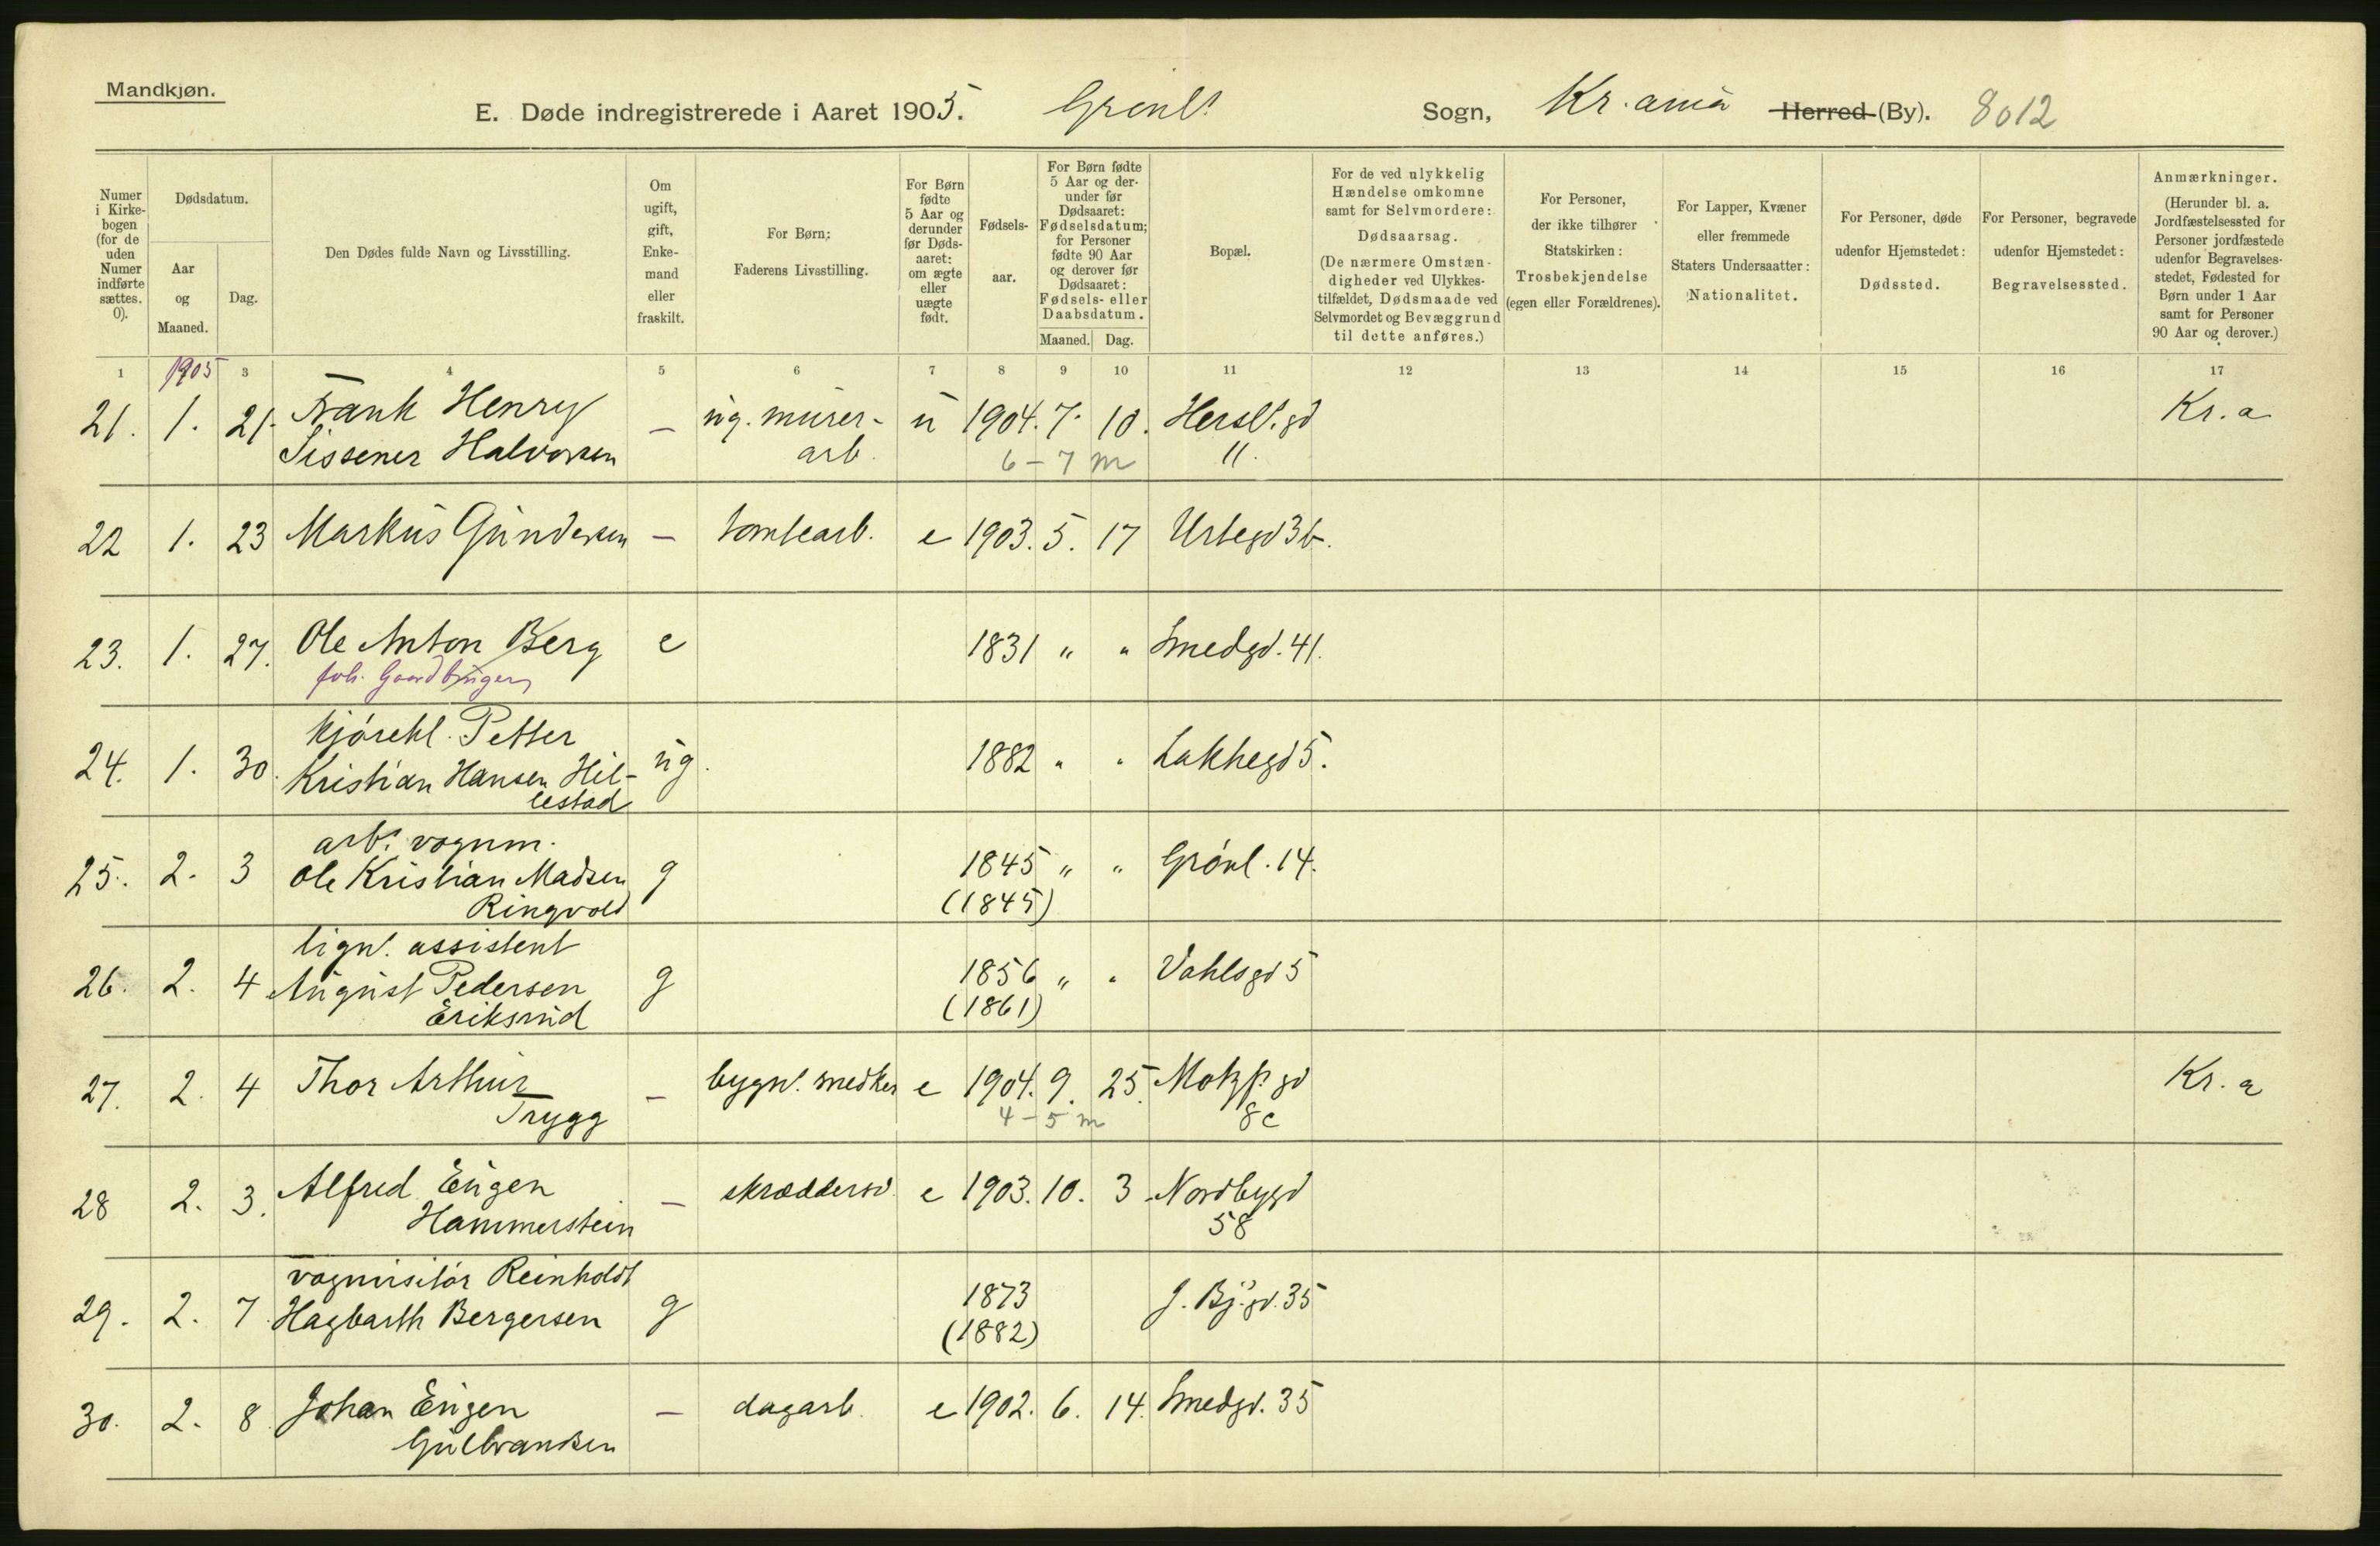 Mandkjøn.
E. Døde indregistrerede i Aaret 1905. Grønl. Sogn, Kr.ania Herred (By). 8012
Numer i Kirke-bogen (for de uden Numer indførte sættes. 0).
Dødsdatum.
Aar og Maaned.
Dag.
Den Dødes fulde Navn og Livsstilling.
Om ugift, gift, Enke-mand eller fraskilt.
For Børn: Faderens Livsstilling.
For Børn fødte 5 Aar og derunder før Døds-aaret: om ægte eller uægte født.
Fødsels-aar.
For Børn fødte 5 Aar og der-under før Dødsaaret: Fødselsdatum; for Personer fødte 90 Aar og derover før Dødsaaret: Fødsels- eller Daabsdatum.
Maaned. Dag.
Bopæl.
For de ved ulykkelig Hændelse omkomne samt for Selvmordere: Dødsaarsag. (De nærmere Omstæn-digheder ved Ulykkes-tilfældet, Dødsmaade ved Selvmordet og Bevæggrund til dette anføres.)
For Personer, der ikke tilhører Statskirken: Trosbekjendelse (egen eller Forældrenes).
For Lapper, Kvæner eller fremmede Staters Undersaatter: Nationalitet.
For Personer, døde udenfor Hjemstedet: Dødssted.
For Personer, begravede udenfor Hjemstedet: Begravelsessted.
Anmærkninger. (Herunder bl. a. Jordfæstelsessted for Personer jordfæstede udenfor Begravelses-stedet, Fødested for Børn under 1 Aar samt for Personer 90 Aar og derover.)
1 1905 3 4 5 6 7 8 9 10 11 12 13 14 15 16 17
21. 1. 21. Frank Henry – ug. murer- u 1904. 7. 10. Hersl. gd Kr.a
Sissener Halvorsen arb. 6 – 7 m 11.
22 1. 23 Markus Gundersen – tomtearb. e 1903. 5. 17 Urtegd 3b.
23. 1. 27. Ole Anton Berg e 1831 " " Smedgd. 41.
foh. Gaardbruger
24. 1. 30. kjørekl. Petter ug. 1882 " " Lakkegd 5.
Kristian Hansen Hil-
lestad
25. 2. 3 arb. vognm. g 1845 " " Grønl. 14.
Ole Kristian Madsen
Ringvold (1845)
26. 2. 4 lign. assistent g 1856 " " Vahlsgd 5
August Pedersen
Eriksrud (1861)
27. 2. 4 Thor Arthur – bygn. snedker e 1904. 9. 25. Motzf. gd Kr.a
Trygg 4 – 5 m 8c
28 2. 3. Alfred Eugen – skræddersv. e 1903. 10. 3 Nordbygd
Hammerstein 58
29. 2. 7. vognvisitør Reinholdt g 1873 J. Bj. gd. 35
Hagbarth Bergersen (1882)
30. 2. 8 Johan Eugen – dagarb. e 1902. 6. 14. Smedgd. 35
Gulbrandsen